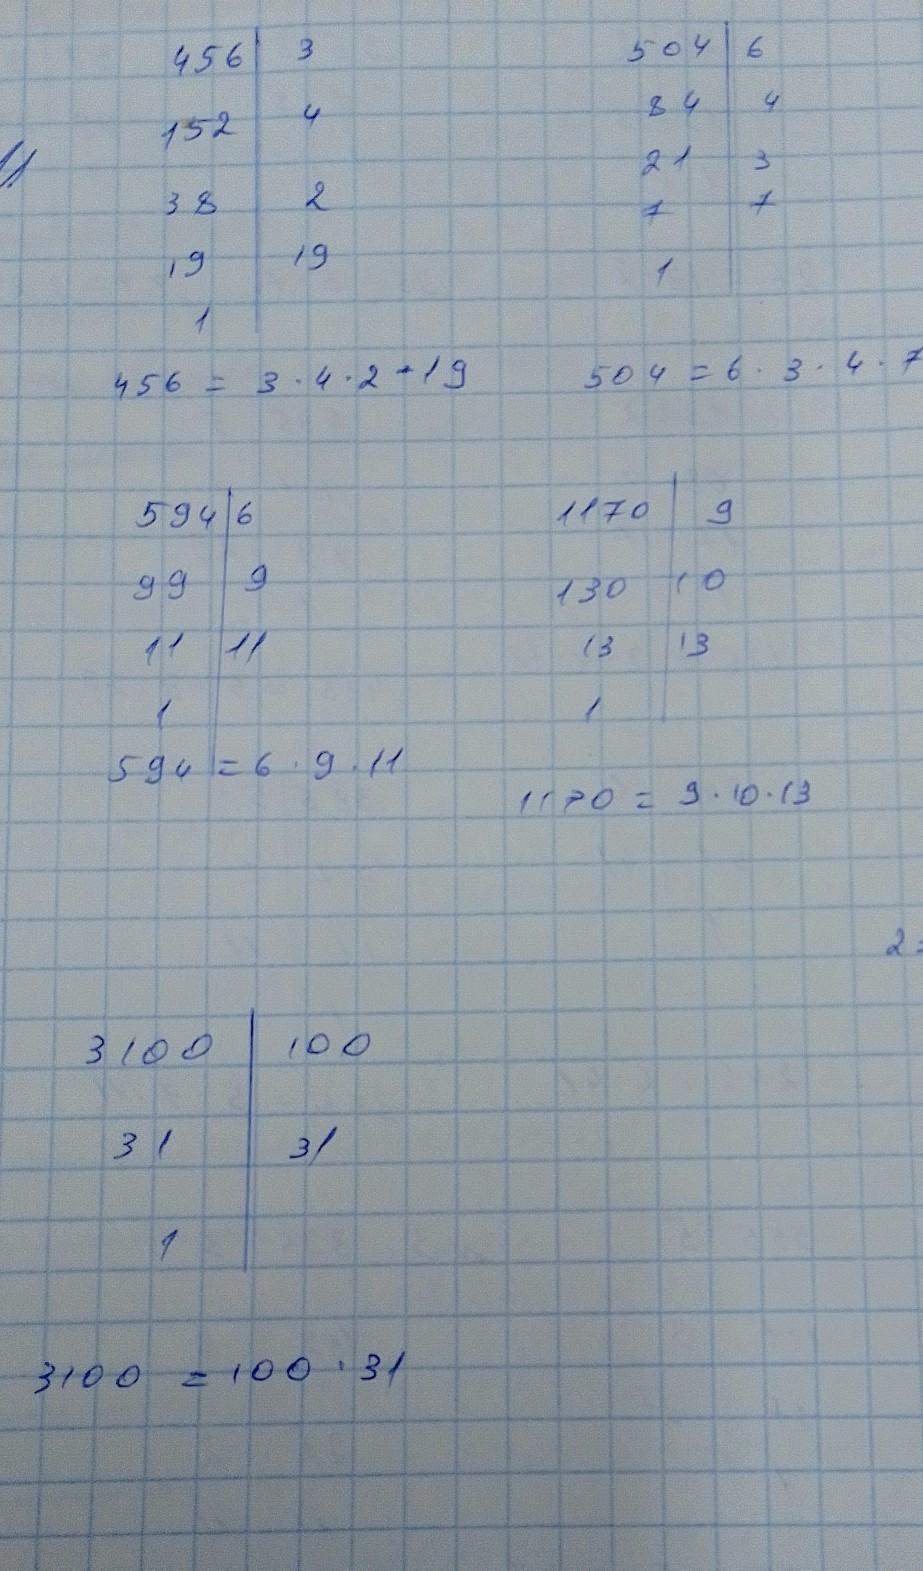 456 | 3
152 | 4
38 | 2
19 | 19
1 |
456 = 3 · 4 · 2 · 19
504 | 6
84 | 4
21 | 3
7 | 7
1 |
504 = 6 · 3 · 4 · 7
594 | 6
99 | 9
11 | 11
1 |
594 = 6 · 9 · 11
1170 | 9
130 | 10
13 | 13
1 |
1170 = 9 · 10 · 13
2 =
3100 | 100
31 | 31
1 |
3100 = 100 · 31